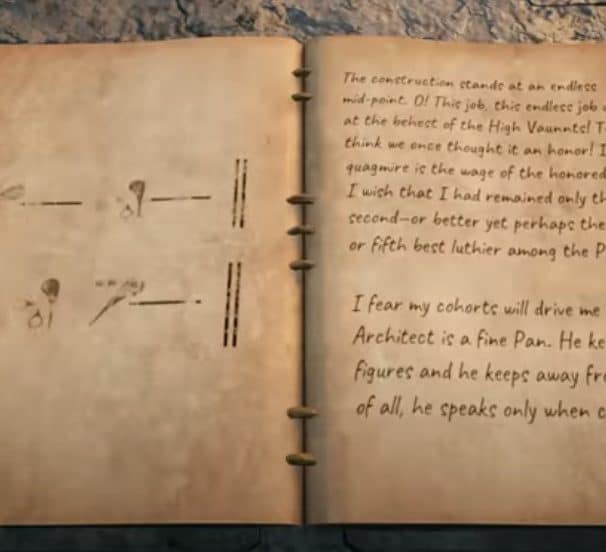 The construction stands at an endless
mid-point. O! This job, this endless job
at the behest of the High Vaunnts!
think we once thought it an honor! I
quagmire is the wage of the honored
I wish that I had remained only
second—or better yet perhaps the
or fifth best luthier among the
I fear my cohorts will drive me
Architect is a fine Pan. He
figures and he keeps away
of all, he speaks only when